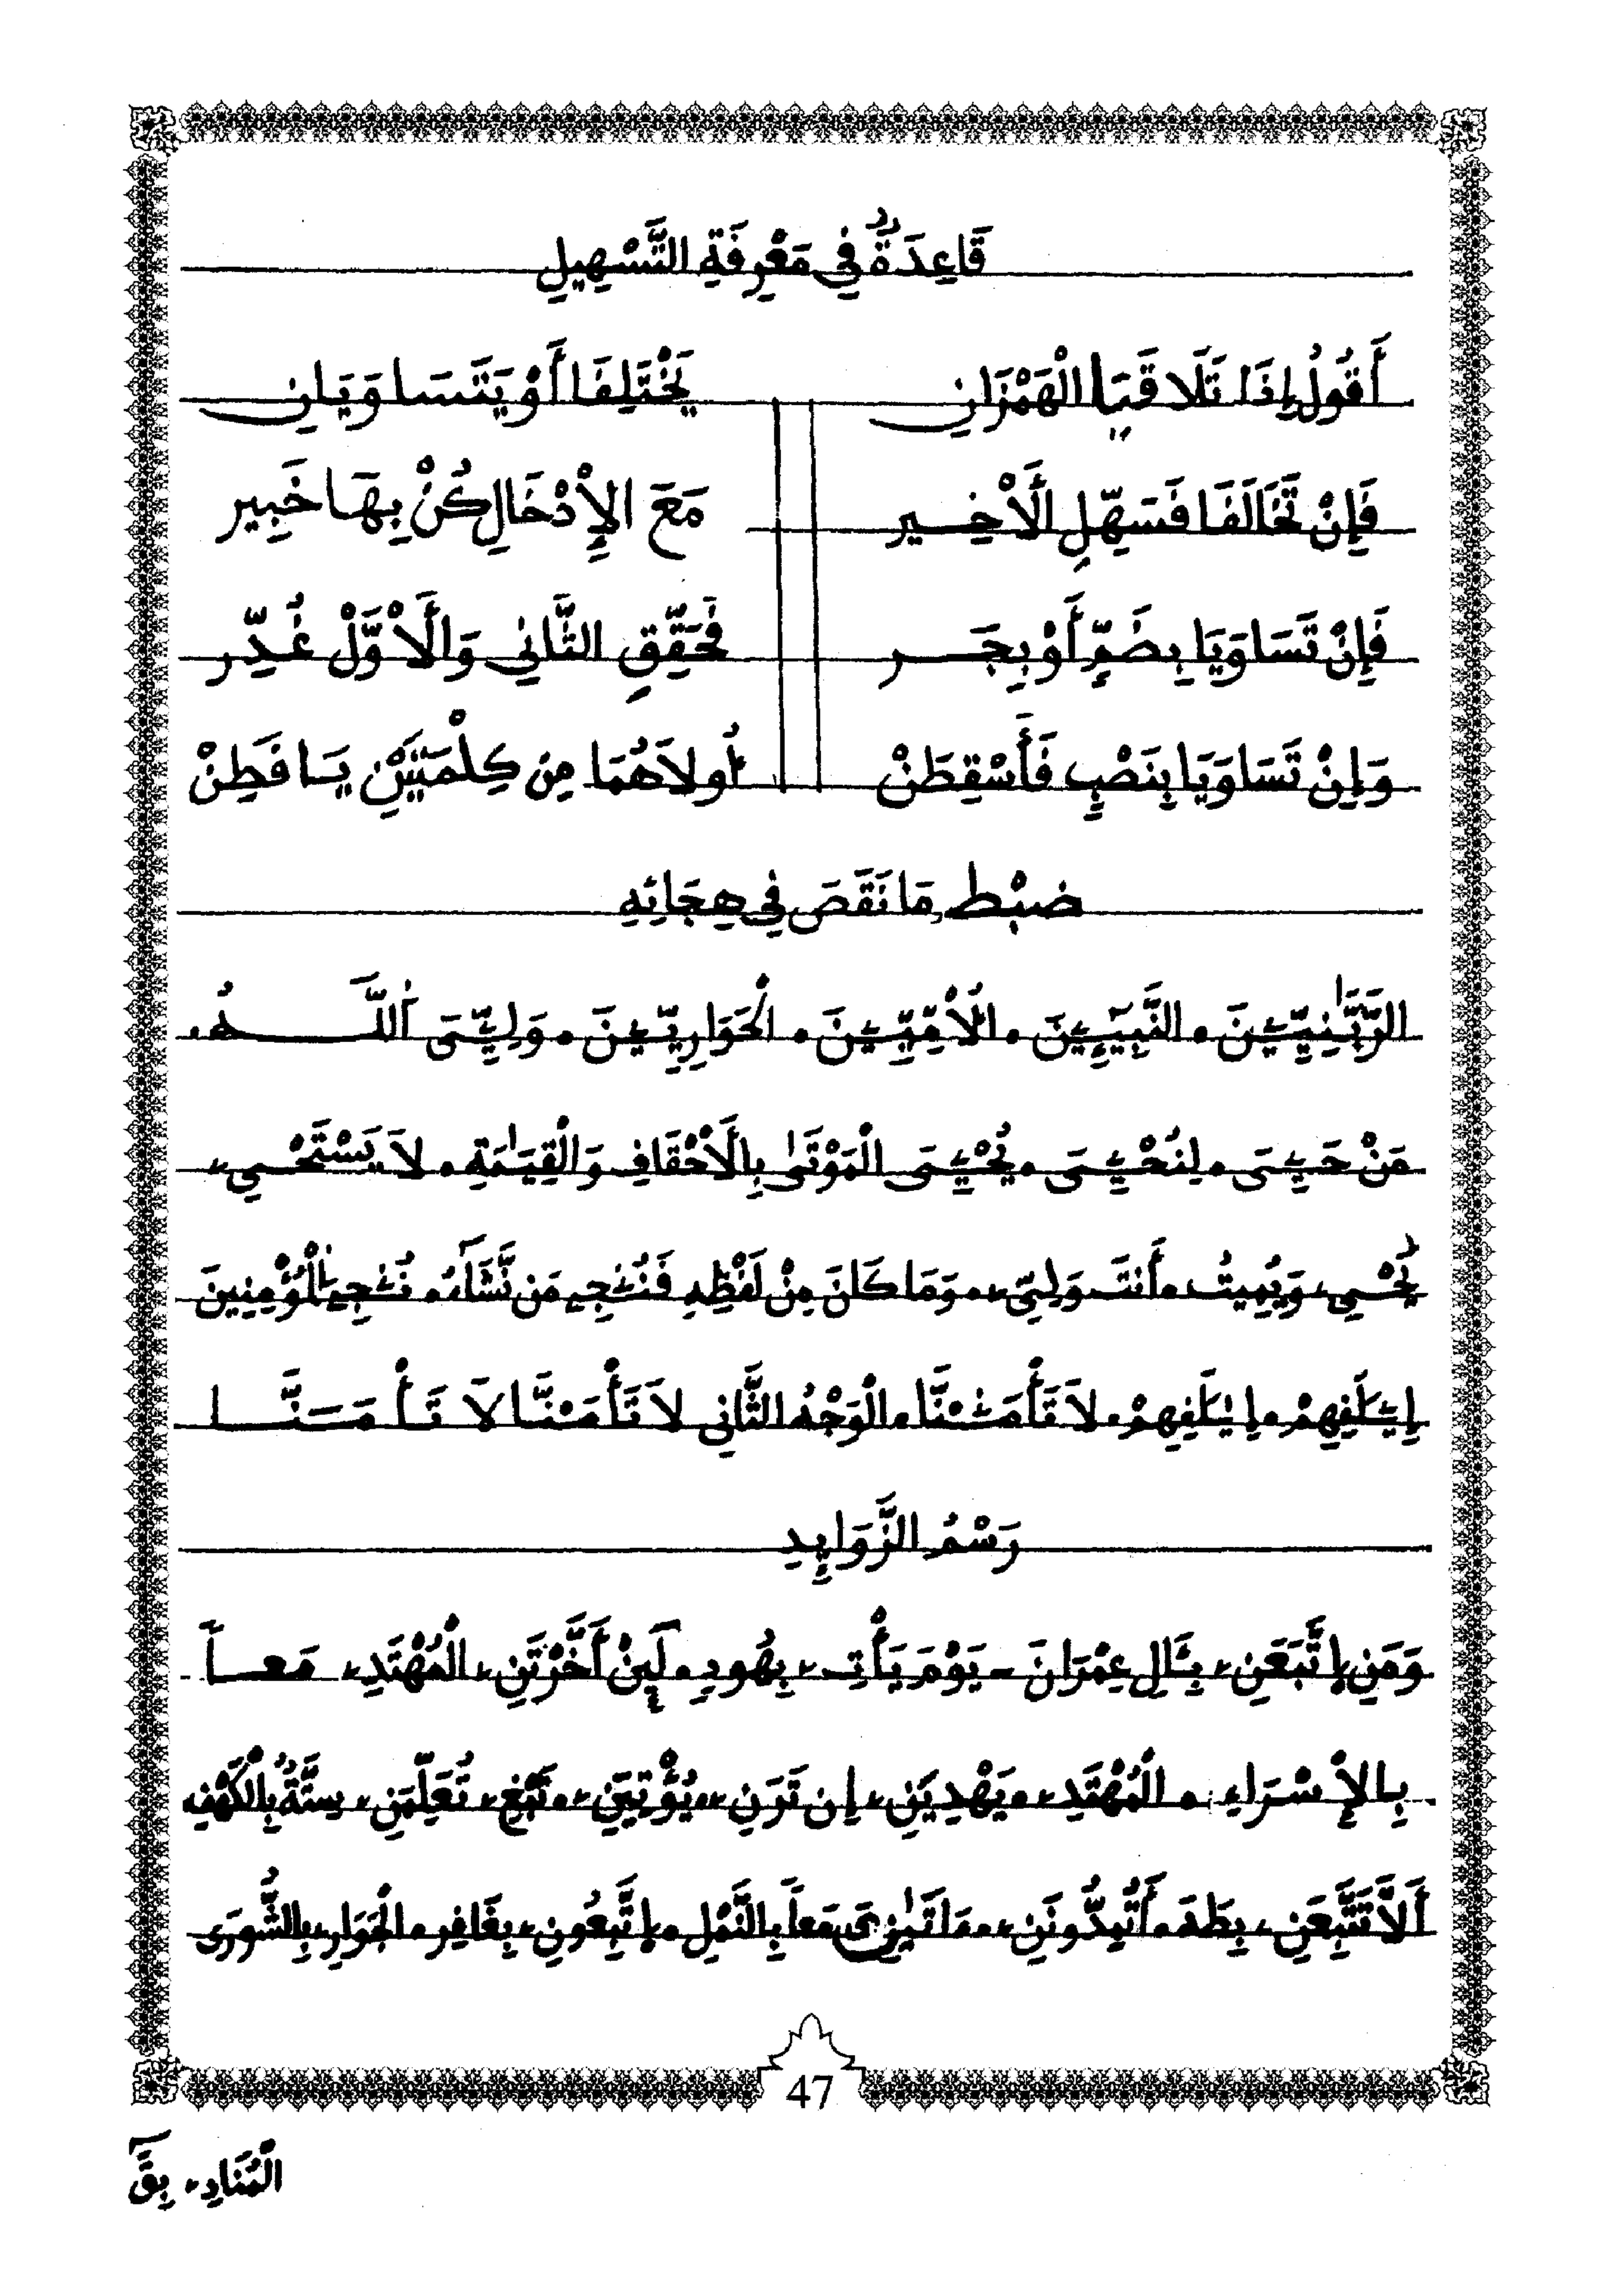 قَاعِدَةٌ فِي مَعْرِفَةِ التَّسْهِيلِ
أَقُولُ إِذَا تَلَاقَيَا الْهَمْزَانِ يَخْتَلِفَا أَوْ يَتَسَاوَيَانِ
فَإِنْ تَخَالَفَا فَسَهِّلِ الْأَخِيرِ مَعَ الْإِدْخَالِ كُنْ بِهَا خَبِيرِ
فَإِنْ تَسَاوَيَا بِضَمٍّ أَوْ بِجَرِ فَحَقِّقِ الثَّانِي وَالْأَوَّلْ غُدِّرِ
وَإِنْ تَسَاوَيَا بِنَصْبٍ فَأَسْقِطَنْ أُولَاهُمَا مِن كِلْمَتَيْنِ يَا فَطِنْ
ضبْط مَا نَقَصَ فِي هِجَائِهِ
الرَّبَّٰنِيِّۦنَ . النَّبِيٓـِٕۦنَ . الْأُمِّيِّۦنَ . الْحَوَارِيِّۦنَ . وَلِيِّۦَ اَللَّهُ .
مَنْ حَيِۦَ . لِنُحْۦِيَ . يُحْۦِيَ الْمَوْتَىٰ بِالْأَحْقَافِ وَالْقِيَٰمَةِ . لَا يَسْتَحْيِۦ
يُحْيِۦ وَيُمِيتُ . أَنتَ وَلِيِّۦ . وَمَا كَانَ مِنْ لَفْظِهِ فَنُۨجِے مَن نَّشَآءُ . نُۨجِے الْمُؤْمِنِينَ
إِۦلَٰفِهِمْ . إِيلَٰفِهِمْ . لَا تَأْمَ۬نْنَا . الْوَجْهُ الثَّانِي لَا تَأْمَنْنَا لَا تَأْمَنَّا
رَسْمُ الزَّوَايِدِ
وَمَنِ اِتَّبَعَنِۦ بِـَٔالِ عِمْرَانَ - يَوْمَ يَأْتِۦ بِهُودٍ . لَئِنْ أَخَّرْتَنِۦ الْمُهْتَدِۦ مَعاً
بِالْإِسْرَاءِ . الْمُهْتَدِۦ . يَهْدِيَنِۦ إِن تَرَنِۦ . يُؤْتِيَنِۦ . نَبْغِۦ تُعَلِّمَنِۦ سِتَّةٌ بِالْكَهْفِ
أَلَّا تَتَّبِعَنِۦ بِطَهَ . أَتُمِدُّونَنِۦ . مَاتَيٰنِۦَ مَعاً بِالنَّمْلِ . اِتَّبِعُونِۦ بِغَافِرِ . الْجَوَارِۦ بِالشُّورَى
47
الْمُنَادِۦ بِقَ